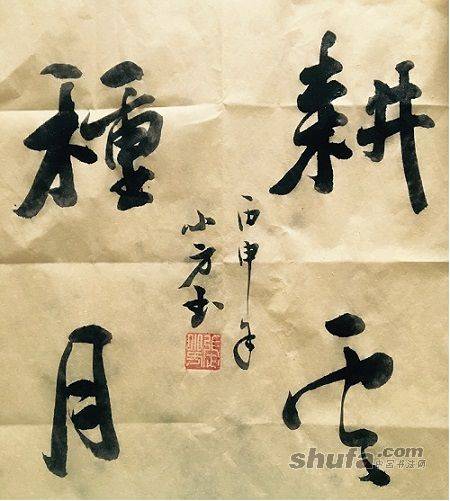 耕雲
種月
丙申年
小方书
shufa.com
中国书法网